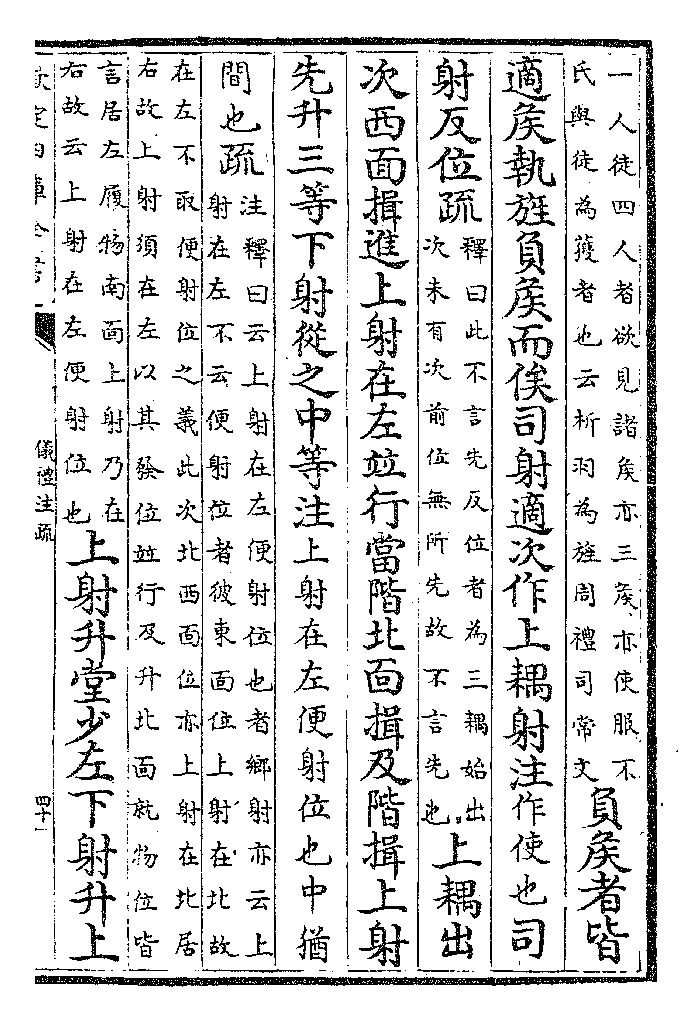 一人徒四人者欲見諸矦亦三矦亦使服不
氏與徒為獲者也云析羽為旌周禮司常文
負矦者皆
適矦執旌負矦而俟司射適次作上耦射注作使也司
射反位疏
釋曰此不言先反位者為三耦始出
次未有次前位無所先故不言先也
上耦出
次西面揖進上射在左竝行當階北面揖及階揖上射
先升三等下射從之中等注上射在左便射位也中猶
間也疏
注釋曰云上射在左便射位也者鄉射亦云上
射在左不云便射位者彼東面位上射在北故
在左不取便射位之義此次北西面位亦上射在北居
右故上射須在左以其發位竝行及升北面就物位皆
言居左履物南面上射乃在
右故云上射在左便射位也
上射升堂少左下射升上
欽定四庫全書
儀禮注疏
四十一